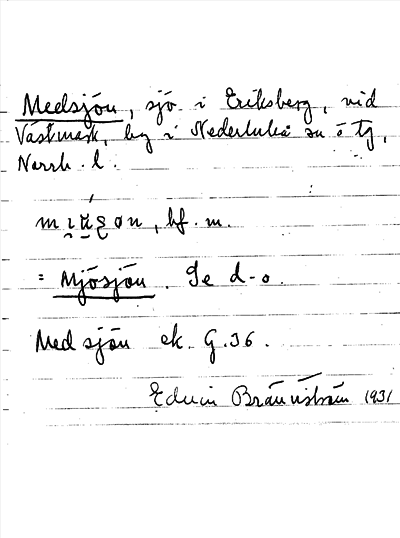 Medsjön, sjö i Eriksberg, vid
Västmark, by i Nederluleå sn o tg,
Norrb. l.
bf. m.
= Mjösjön. Se d-o.
Medsjön ek. G.36.
Edwin Brännström 1931